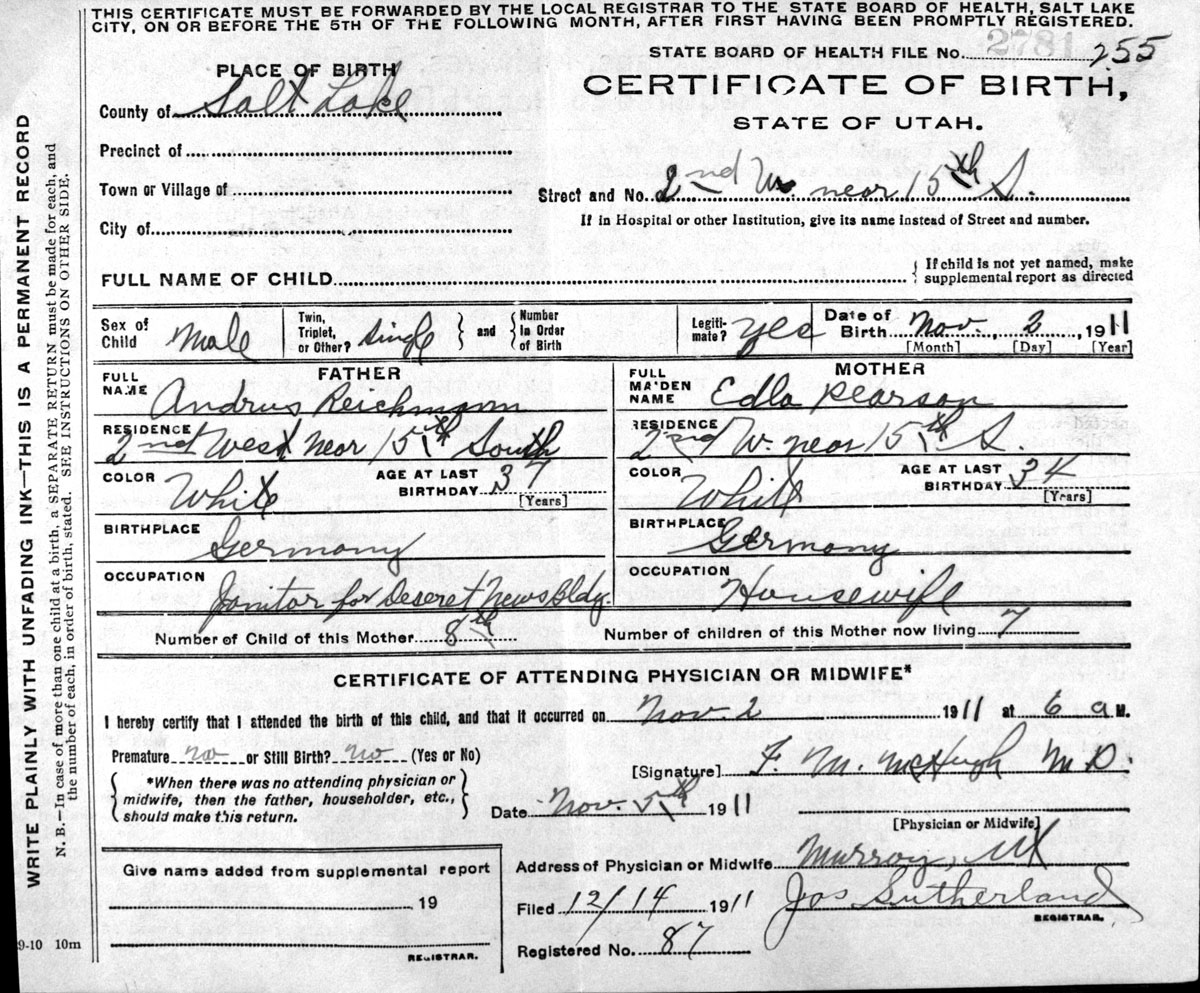 THIS CERTIFICATE MUST BE FORWARDED BY THE LOCAL REGISTRAR TO THE STATE BOARD OF HEALTH, SALT LAKE
CITY, ON OR BEFORE THE 5TH OF THE FOLLOWING MONTH, AFTER FIRST HAVING BEEN PROMPTLY REGISTERED.
2781
STATE BOARD OF HEALTH FILE No. 255
PLACE OF BIRTH
CERTIFICATE OF BIRTH,
County of Salt Lake
STATE OF UTAH.
Precinct of
Town or Village of
Street and No. 2nd W. near 15th S.
City of
If in Hospital or other Institution, give its name instead of Street and number.
FULL NAME OF CHILD
{ If child is not yet named, make
supplemental report as directed
Sex of Child Male
Twin, Triplet, or Other? Single } and { Number In Order of Birth
Legiti-mate? yes
Date of Birth Nov. 2 1911
[Month] [Day] [Year]
FATHER
FULL NAME Andrus Reichmann
RESIDENCE 2nd West near 15th South
COLOR White
AGE AT LAST BIRTHDAY 37 [Years]
BIRTHPLACE Germany
OCCUPATION Janitor for Deseret News Bldg.
MOTHER
FULL MAIDEN NAME Edla Pearson
RESIDENCE 2nd W. near 15th S.
COLOR White
AGE AT LAST BIRTHDAY 34 [Years]
BIRTHPLACE Germany
OCCUPATION Housewife
Number of Child of this Mother 8th
Number of children of this Mother now living 7
CERTIFICATE OF ATTENDING PHYSICIAN OR MIDWIFE*
I hereby certify that I attended the birth of this child, and that it occurred on Nov. 2 1911 at 6 a M.
Premature no or Still Birth? No (Yes or No)
{ *When there was no attending physician or
midwife, then the father, householder, etc.,
should make this return. }
[Signature] F. M. McHugh M D.
Date Nov. 5th 1911
[Physician or Midwife]
Address of Physician or Midwife Murray, Ut
Give name added from supplemental report
19
REGISTRAR.
Filed 12/14 1911
Jos Sutherland
REGISTRAR.
Registered No. 87
9-10 10m
WRITE PLAINLY WITH UNFADING INK—THIS IS A PERMANENT RECORD
N. B.—In case of more than one child at a birth, a SEPARATE RETURN must be made for each, and
the number of each, in order of birth, stated. SEE INSTRUCTIONS ON OTHER SIDE.